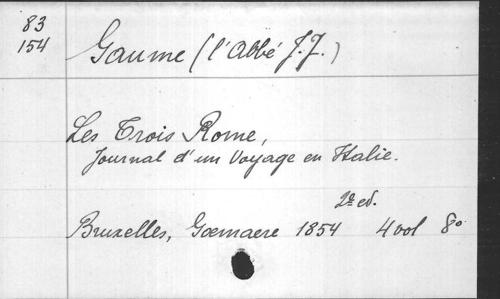 83
154
Gaume (l'abbé J.J.)
Les Trois Rome,
Journal d'un Voyage en Italie.
2e ed.
Bruxelles, Goemaere 1854 4 vol 8o